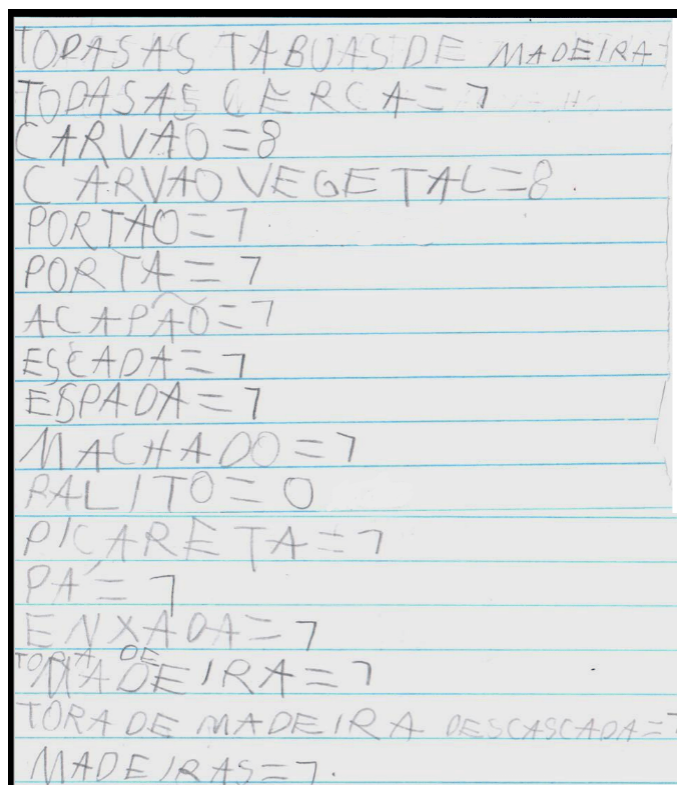 TODAS AS TABUAS DE MADEIRA=
TODAS AS CERCA=7
CARVAO=8
CARVAO VEGETAL=8.
PORTAO=7
PORTA=7
ACAPÃO=7
ESCADA=7
ESPADA=7
MACHADO=7
PALITO=0
PICARETA=7
PÁ=7
ENXADA=7
TORA DE
MADEIRA=7
TORA DE MADEIRA DESCASCADA=7
MADEIRAS=7.